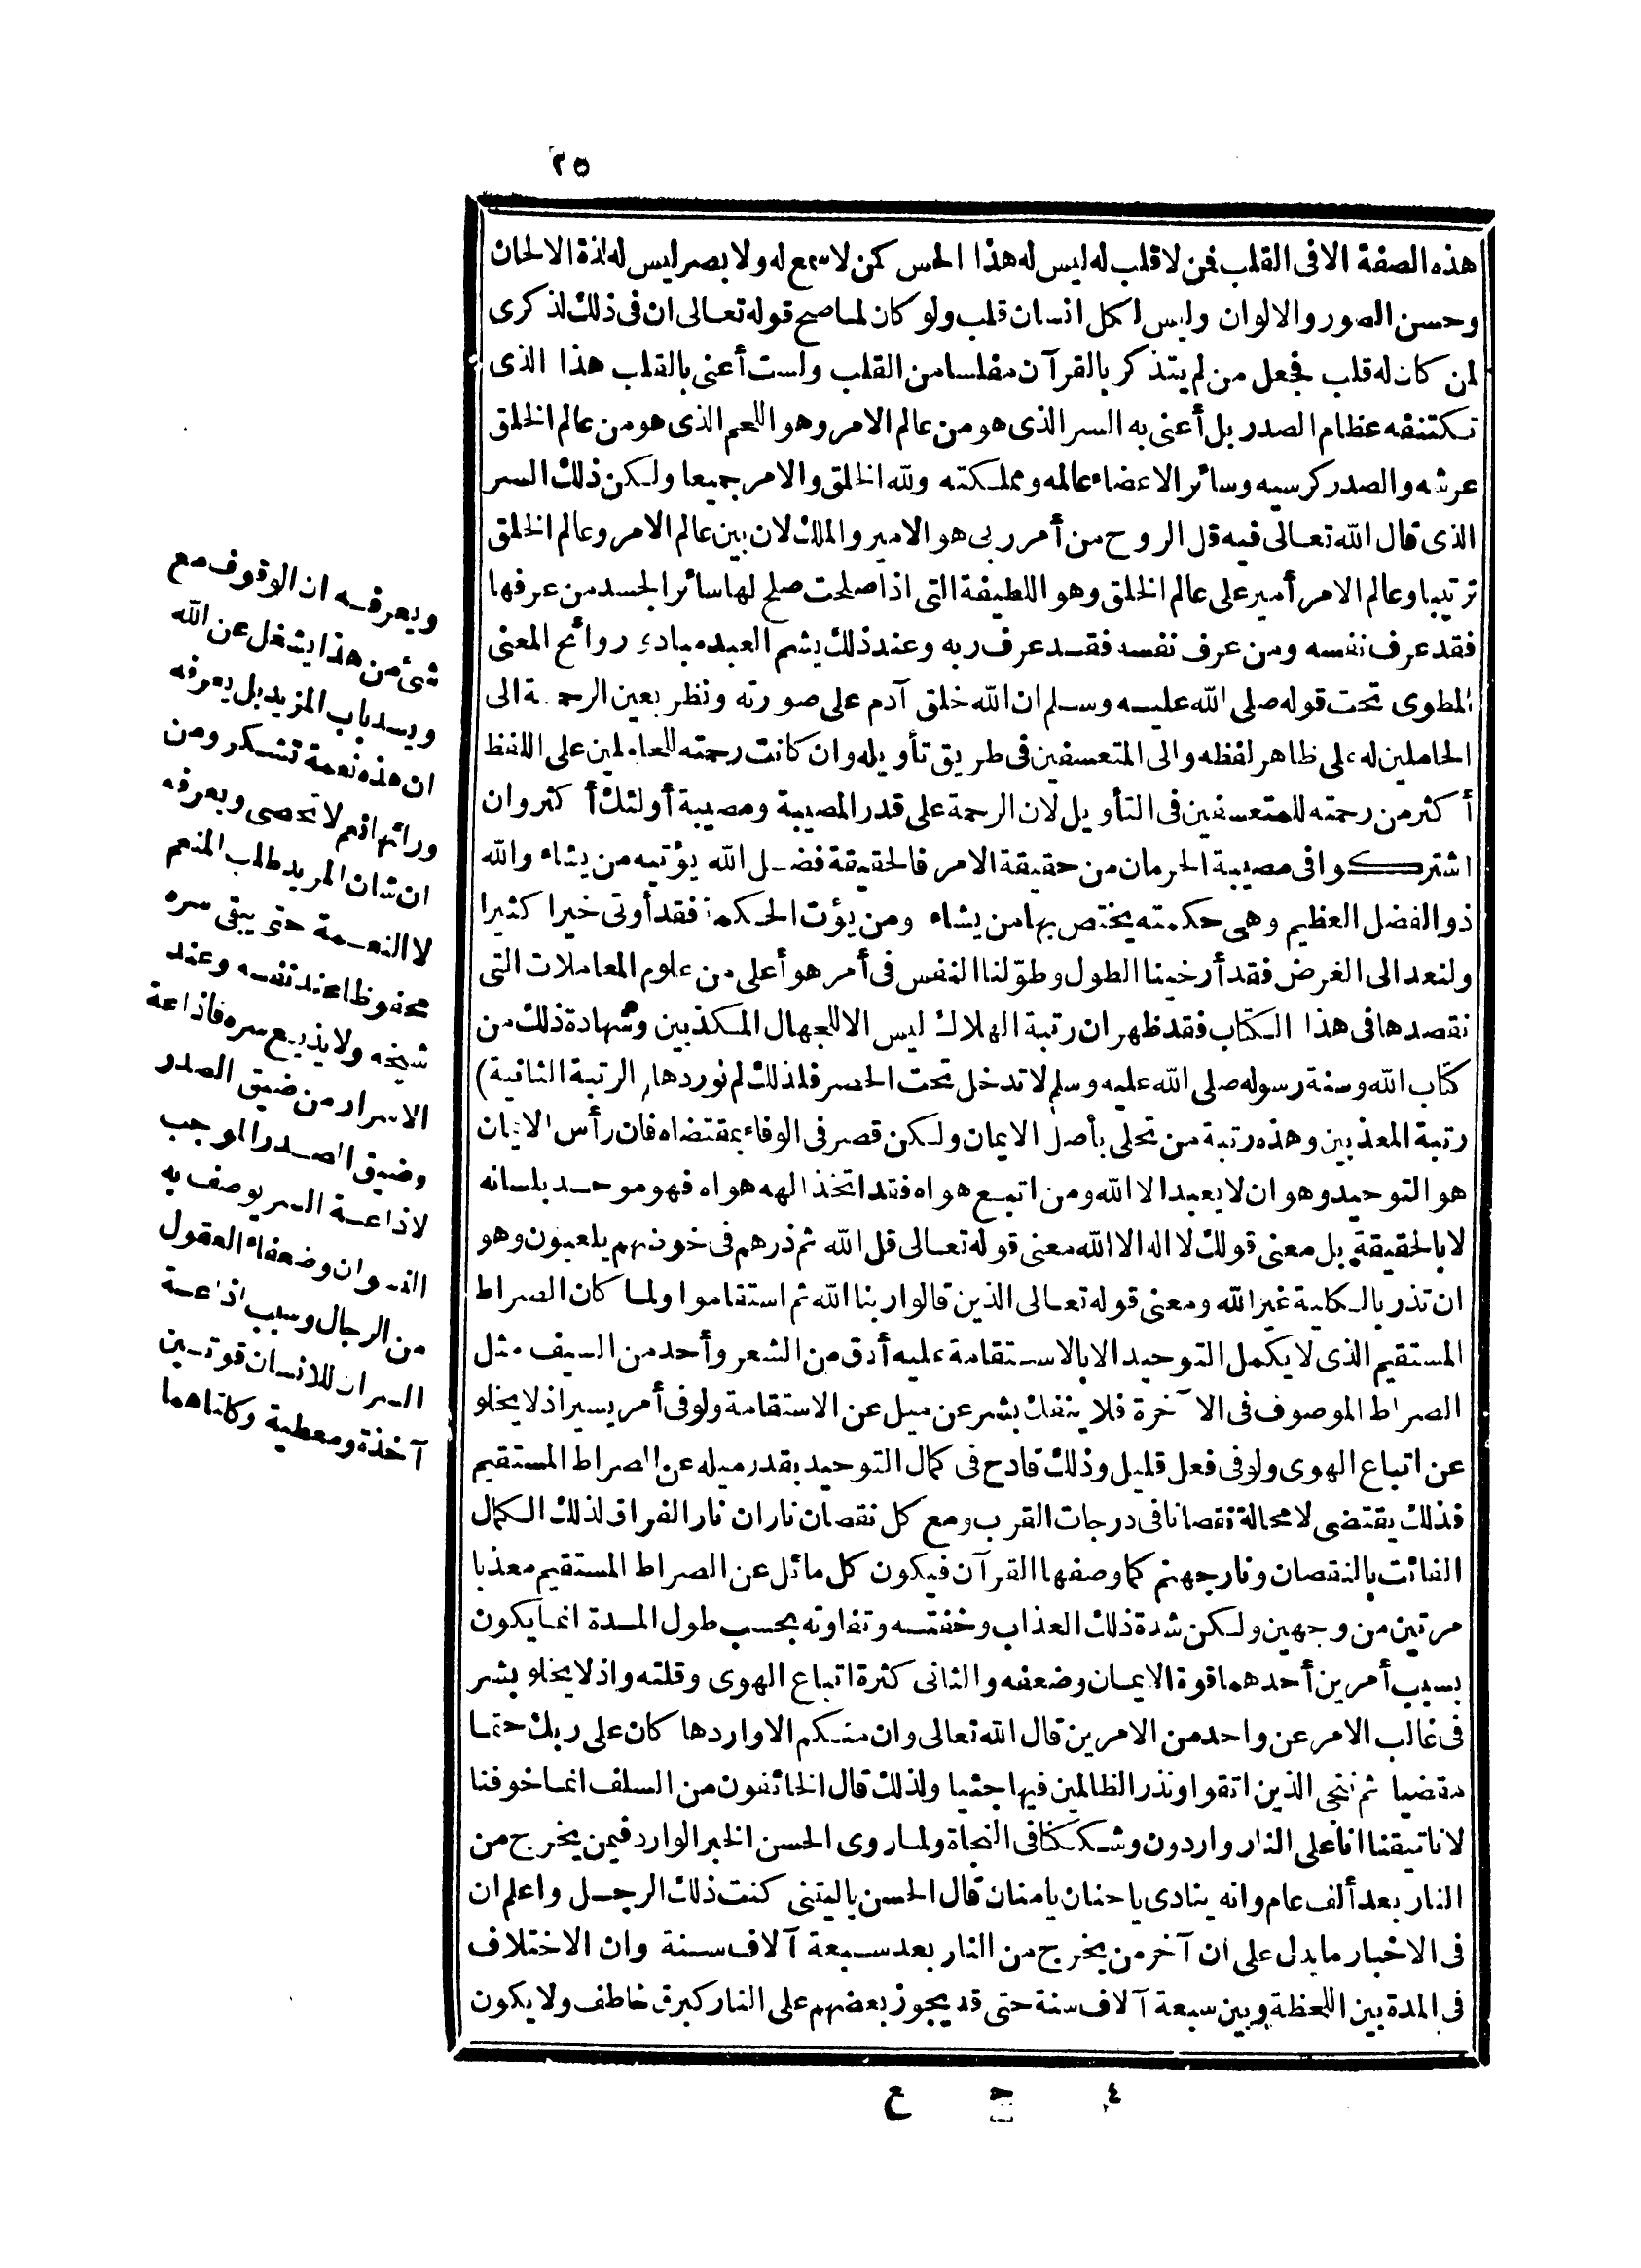 ٢٥
هذه الصفة الا فى القلب فمن لا قلب له ليس له هذا الحس كمن لا سمع له ولا بصر ليس له لذة الالحان
وحسن الصور والالوان وليس لكل انسان قلب ولو كان لما صح قوله تعالى ان فى ذلك لذكرى
لمن كان له قلب فجعل من لم يتذكر بالقرآن مفلسا من القلب ولست أعنى بالقلب هذا الذى
تكتنفه عظام الصدر بل أعنى به السر الذى هو من عالم الامر وهو اللحم الذى هو من عالم الخلق
عرشه والصدر كرسيه وسائر الاعضاء عالمه ومملكته ولله الخلق والامر جميعا ولكن ذلك السر
الذى قال الله تعالى فيه قل الروح من أمر ربى هو الامير والملك لان بين عالم الامر وعالم الخلق
ترتيبا وعالم الامر أمير على عالم الخلق وهو اللطيفة التى اذا صلحت صلح لها سائر الجسد من عرفها
فقد عرف نفسه ومن عرف نفسه فقد عرف ربه وعند ذلك يشم العبد مبادئ روائح المعنى
المطوى تحت قوله صلى الله عليه وسلم ان الله خلق آدم على صورته ونظر بعين الرحمة الى
الحاملين له على ظاهر لفظه والى المتعسفين فى طريق تأويله وان كانت رحمته للحاملين على اللفظ
أكثر من رحمته للمتعسفين فى التأويل لان الرحمة على قدر المصيبة ومصيبة أولئك أكثر وان
اشتركوا فى مصيبة الحرمان من حقيقة الامر فالحقيقة فضل الله يؤتيه من يشاء والله
ذو الفضل العظيم وهى حكمته يختص بها من يشاء ومن يؤت الحكمة فقد أوتى خيرا كثيرا
ولنعد الى الغرض فقد أرخينا الطول وطوّلنا النفس فى أمر هو أعلى من علوم المعاملات التى
نقصدها فى هذا الكتاب فقد ظهر ان رتبة الهلاك ليس الا للجهال المكذبين وشهادة ذلك من
كتاب الله وسنة رسوله صلى الله عليه وسلم لا تدخل تحت الحصر فلذلك لم نوردها (الرتبة الثانية)
رتبة المعذبين وهذه رتبة من تحلى بأصل الايمان ولكن قصر فى الوفاء بمقتضاه فان رأس الايمان
هو التوحيد وهو ان لا يعبد الا الله ومن اتبع هواه فقد اتخذ الهه هواه فهو موحد بلسانه
لا بالحقيقة بل معنى قولك لا اله الا الله معنى قوله تعالى قل الله ثم ذرهم فى خوضهم يلعبون وهو
ان تذر بالكلية غير الله ومعنى قوله تعالى الذين قالوا ربنا الله ثم استقاموا ولما كان الصراط
المستقيم الذى لا يكمل التوحيد الا بالاستقامة عليه أدق من الشعر وأحد من السيف مثل
الصراط الموصوف فى الآخرة فلا ينفك بشر عن ميل عن الاستقامة ولو فى أمر يسير اذ لا يخلو
عن اتباع الهوى ولو فى فعل قليل وذلك قادح فى كمال التوحيد بقدر ميله عن الصراط المستقيم
فذلك يقتضى لا محالة نقصانا فى درجات القرب ومع كل نقصان ناران نار الفراق لذلك الكمال
الفائت بالنقصان ونار جهنم كما وصفها القرآن فيكون كل مائل عن الصراط المستقيم معذبا
مرتين من وجهين ولكن شدة ذلك العذاب وخفته وتفاوته بحسب طول المدة انما يكون
بسبب أمرين أحدهما قوة الايمان وضعفه والثانى كثرة اتباع الهوى وقلته واذ لا يخلو بشر
فى غالب الامر عن واحد من الامرين قال الله تعالى وان منكم الا واردها كان على ربك حتما
مقضيا ثم ننجى الذين اتقوا ونذر الظالمين فيها جثيا ولذلك قال الخائفون من السلف انما خوفنا
لانا تيقنا انا على النار واردون وشككنا فى النجاة ولما روى الحسن الخبر الوارد فيمن يخرج من
النار بعد ألف عام وانه ينادى يا حنان يا منان قال الحسن ياليتنى كنت ذلك الرجل واعلم ان
فى الاخبار ما يدل على ان آخر من يخرج من النار بعد سبعة آلاف سنة وان الاختلاف
فى المدة بين اللحظة وبين سبعة آلاف سنة حتى قد يجوز بعضهم على النار كبرق خاطف ولا يكون
ويعرفه ان الوقوف مع
شئ من هذا يشغل عن الله
ويسد باب المزيد بل يعرفه
ان هذه نعمة تشكر ومن
ورائها نعم لا تحصى ويعرفه
ان شان المريد طلب المنعم
لا النعمة حتى يبقى سره
محفوظا عند نفسه وعند
شيخه ولا يذيع سره فاذاعة
الاسرار من ضيق الصدر
وضيق الصدر الموجب
لاذاعة السر يوصف به
النسوان وضعفاء العقول
من الرجال وسبب اذاعة
السر ان للانسان قوتين
آخذة ومعطية وكلتاهما
٤ ح ع